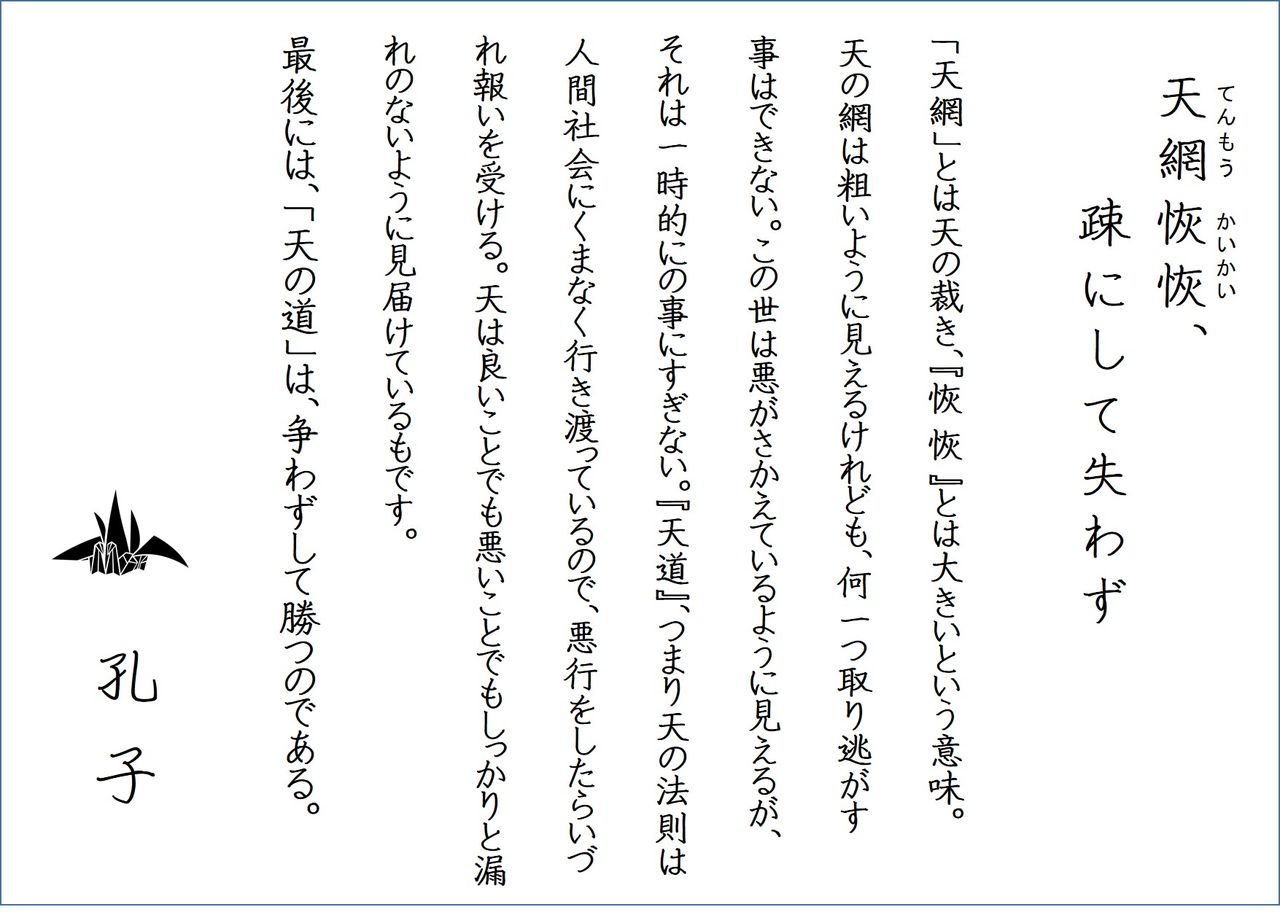 天網恢恢、
てんもう かいかい
疎にして失わず
「天網」とは天の裁き、『恢恢』とは大きいという意味。
天の網は粗いように見えるけれども、何一つ取り逃がす
事はできない。この世は悪がさかえているように見えるが、
それは一時的にの事にすぎない。『天道』、つまり天の法則は
人間社会にくまなく行き渡っているので、悪行をしたらいづ
れ報いを受ける。天は良いことでも悪いことでもしっかりと漏
れのないように見届けているもです。
最後には、「天の道」は、争わずして勝つのである。
孔子